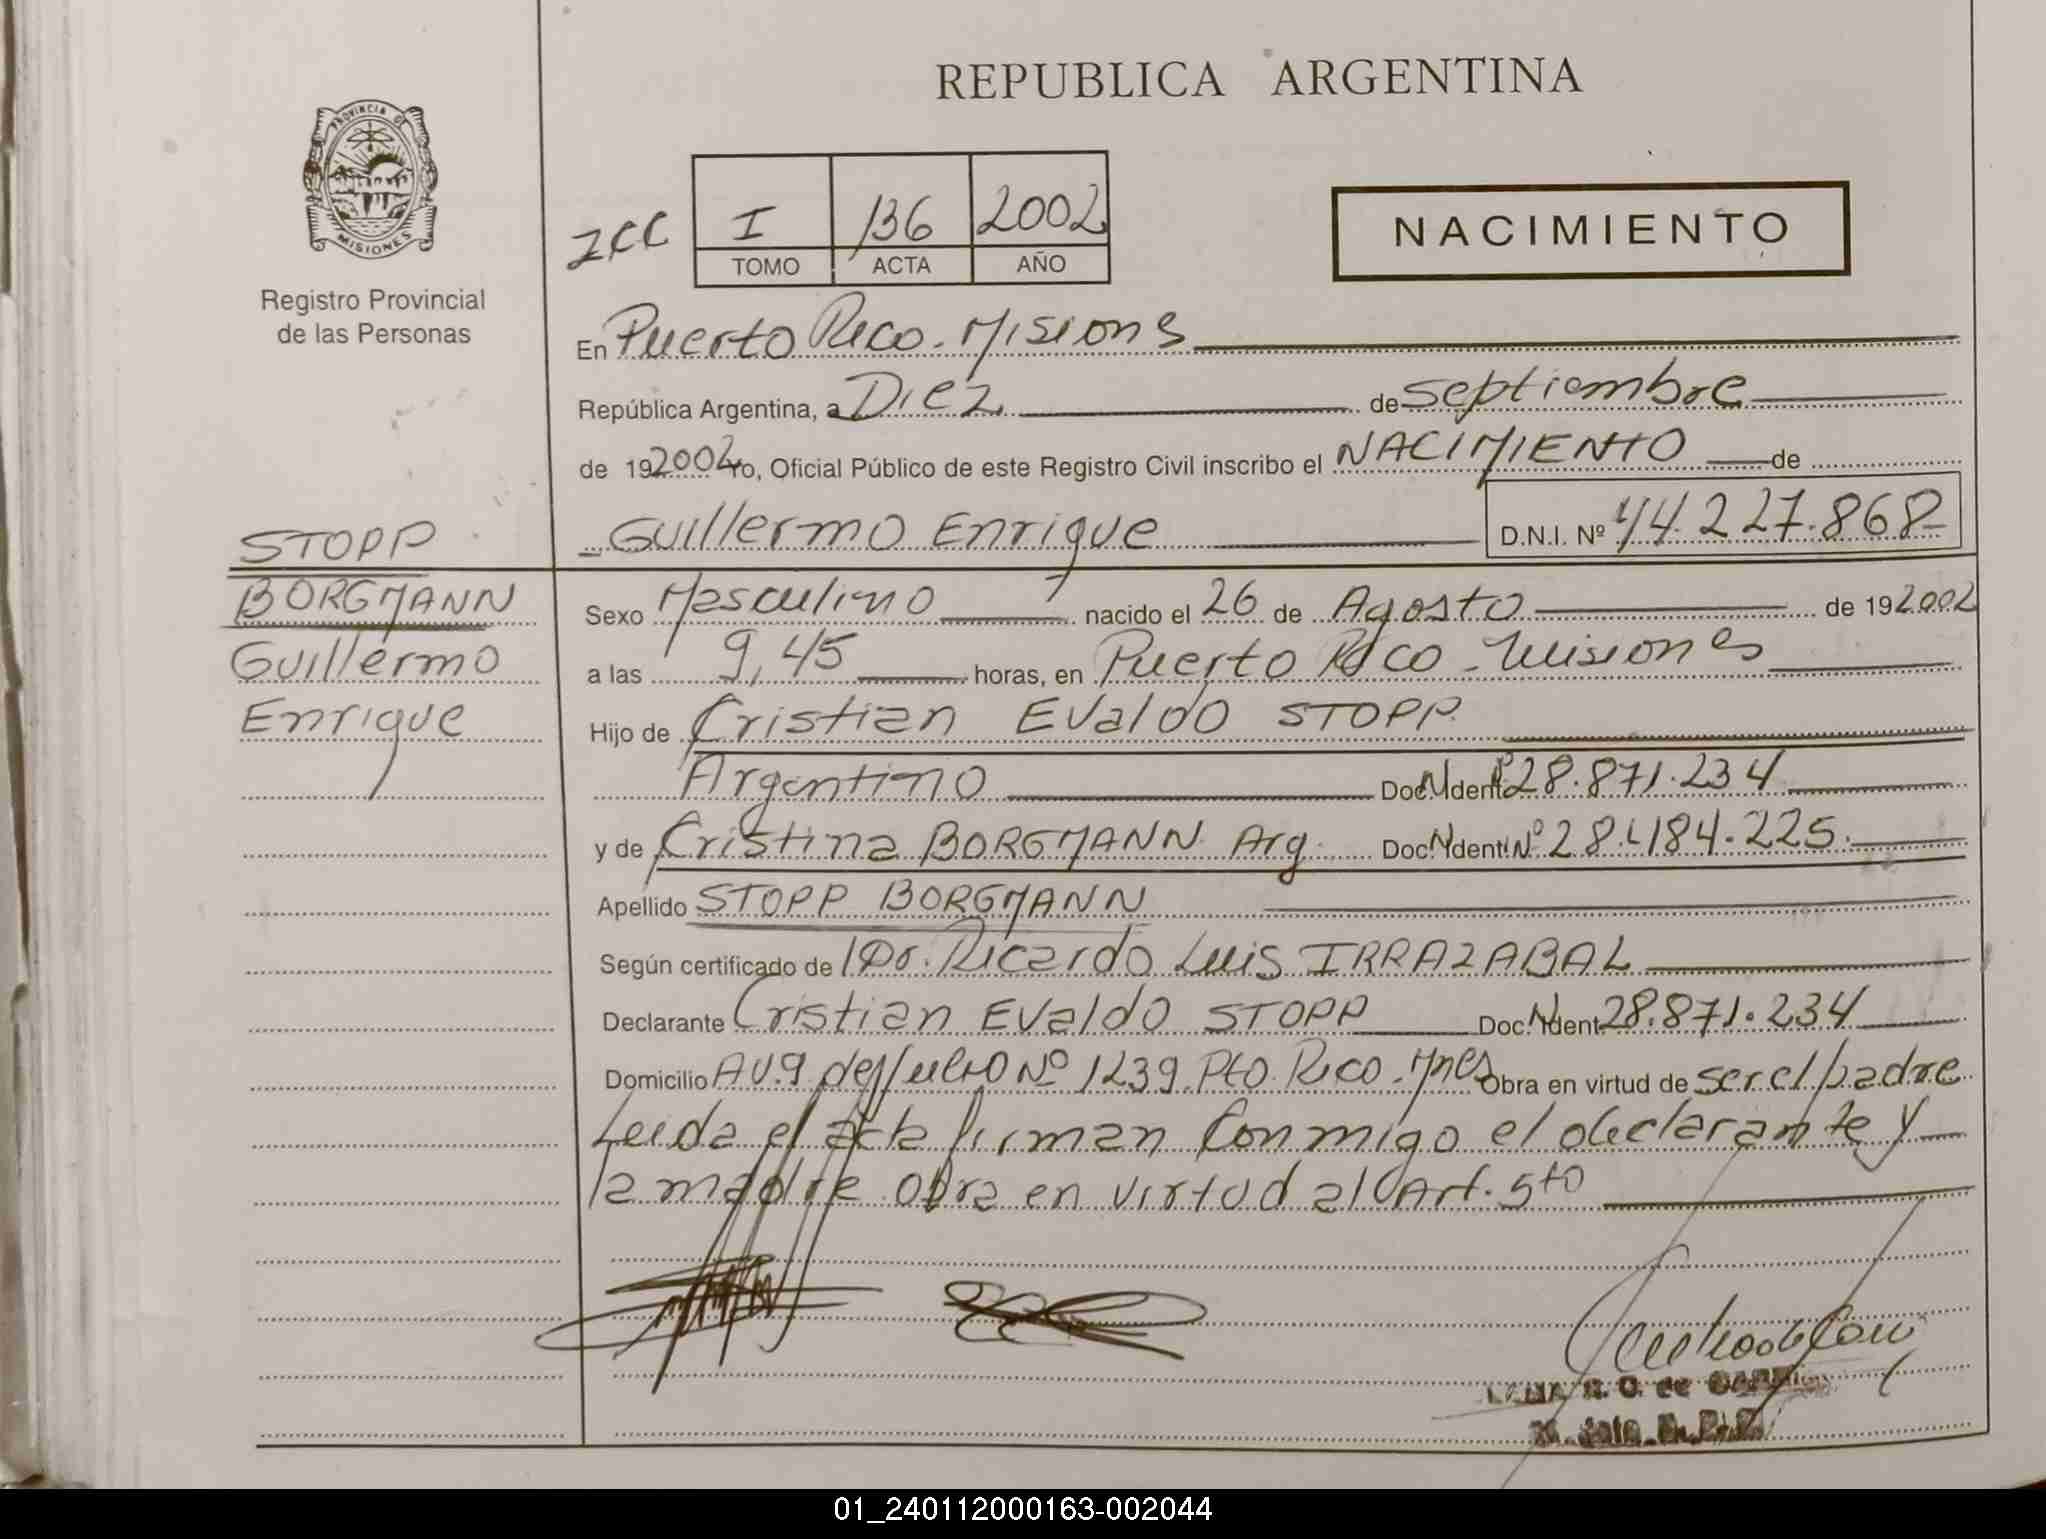 REPUBLICA ARGENTINA
PROVINCIA DE
MISIONES
Registro Provincial
de las Personas
I 136 2002
TOMO ACTA AÑO
NACIMIENTO
En Puerto Rico. Misiones
República Argentina, a Diez de septiembre
de 192002 Yo, Oficial Público de este Registro Civil inscribo el NACIMIENTO de
Guillermo Enrique D.N.I. Nº 44.227.868
STOPP
BORGMANN
Guillermo
Enrique
Sexo Masculino nacido el 26 de Agosto de 192002
a las 9,45 horas, en Puerto Rico - Misiones
Hijo de Cristian Evaldo STOPP.
Argentino Doc. Ident. Nº 28.871.234
y de Cristina BORGMANN Arg. Doc. Ident. Nº 28.484.225.
Apellido STOPP BORGMANN
Según certificado de Dr. Ricardo Luis IRRAZABAL
Declarante Cristian Evaldo STOPP Doc. Ident. 28.871.234
Domicilio AV. 9 de Julio Nº 1239 Pto. Rico. Mnes Obra en virtud de ser el padre
Leida el acta firman conmigo el declarante y
la madre obra en virtud al Art. 5to
01_240112000163-002044